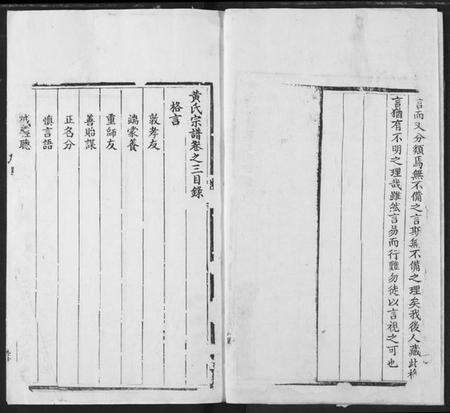 言而又分類焉無不備之言斯無不備之理矣我後人藏此格
言猶有不明之理哉雖然言易而行難勿徒以言視之可也
黃氏宗譜卷之三目錄
格言
敦孝友
端蒙養
重師友
善貽謀
正名分
慎言語
戒聽